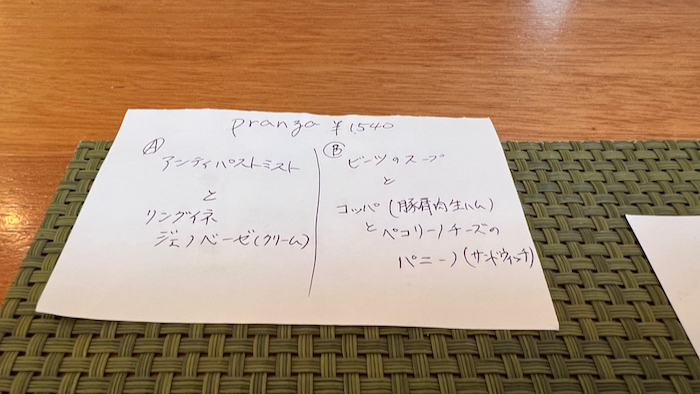 pranzo ¥1,540
Ⓐ
アンティパストミスト
と
リングイネ
ジェノベーゼ(クリーム)
Ⓑ
ビーツのスープ
と
コッパ(豚肩肉生ハム)
とペコリーノチーズの
パニーノ(サンドウィッチ)